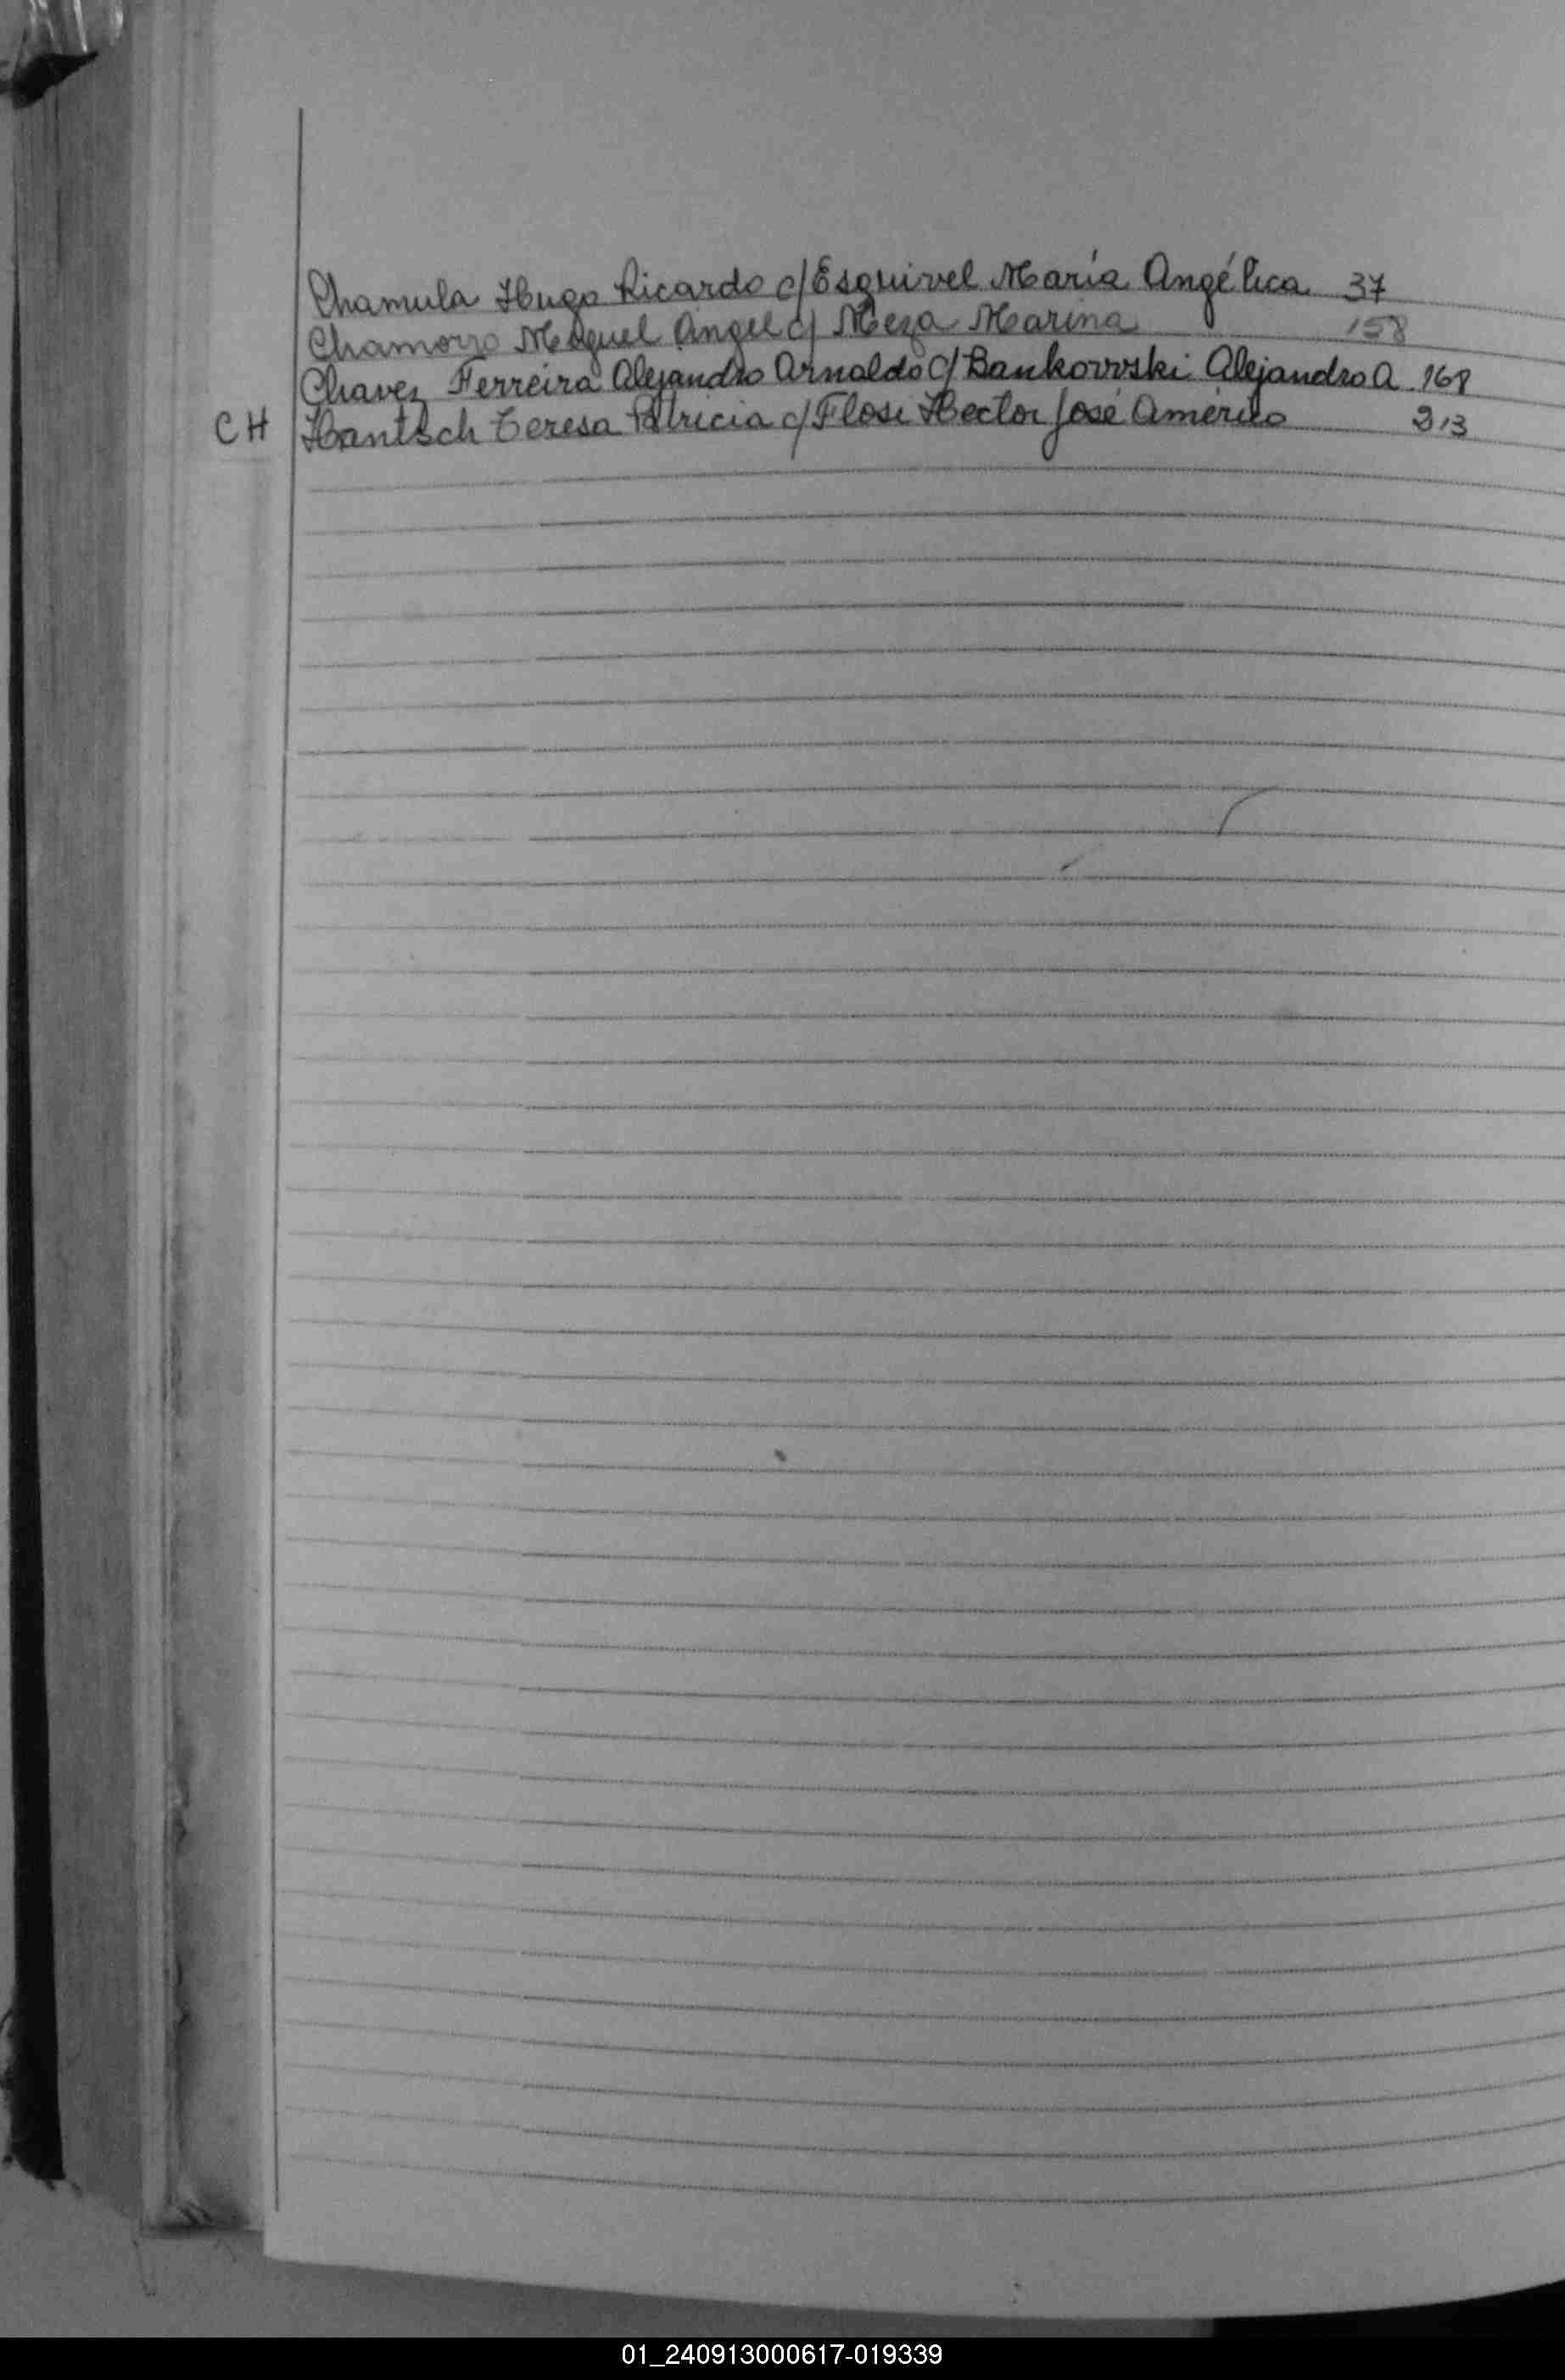 Chamula Hugo Ricardo c/ Esquivel María Angélica 37
Chamorro Miguel Angel c/ Meza Marina 158
Chavez Ferreira Alejandro Arnaldo c/ Bankowski Alejandra A. 168
CH Hantsch Teresa Patricia c/ Flosi Hector José Américo 213
01_240913000617-019339